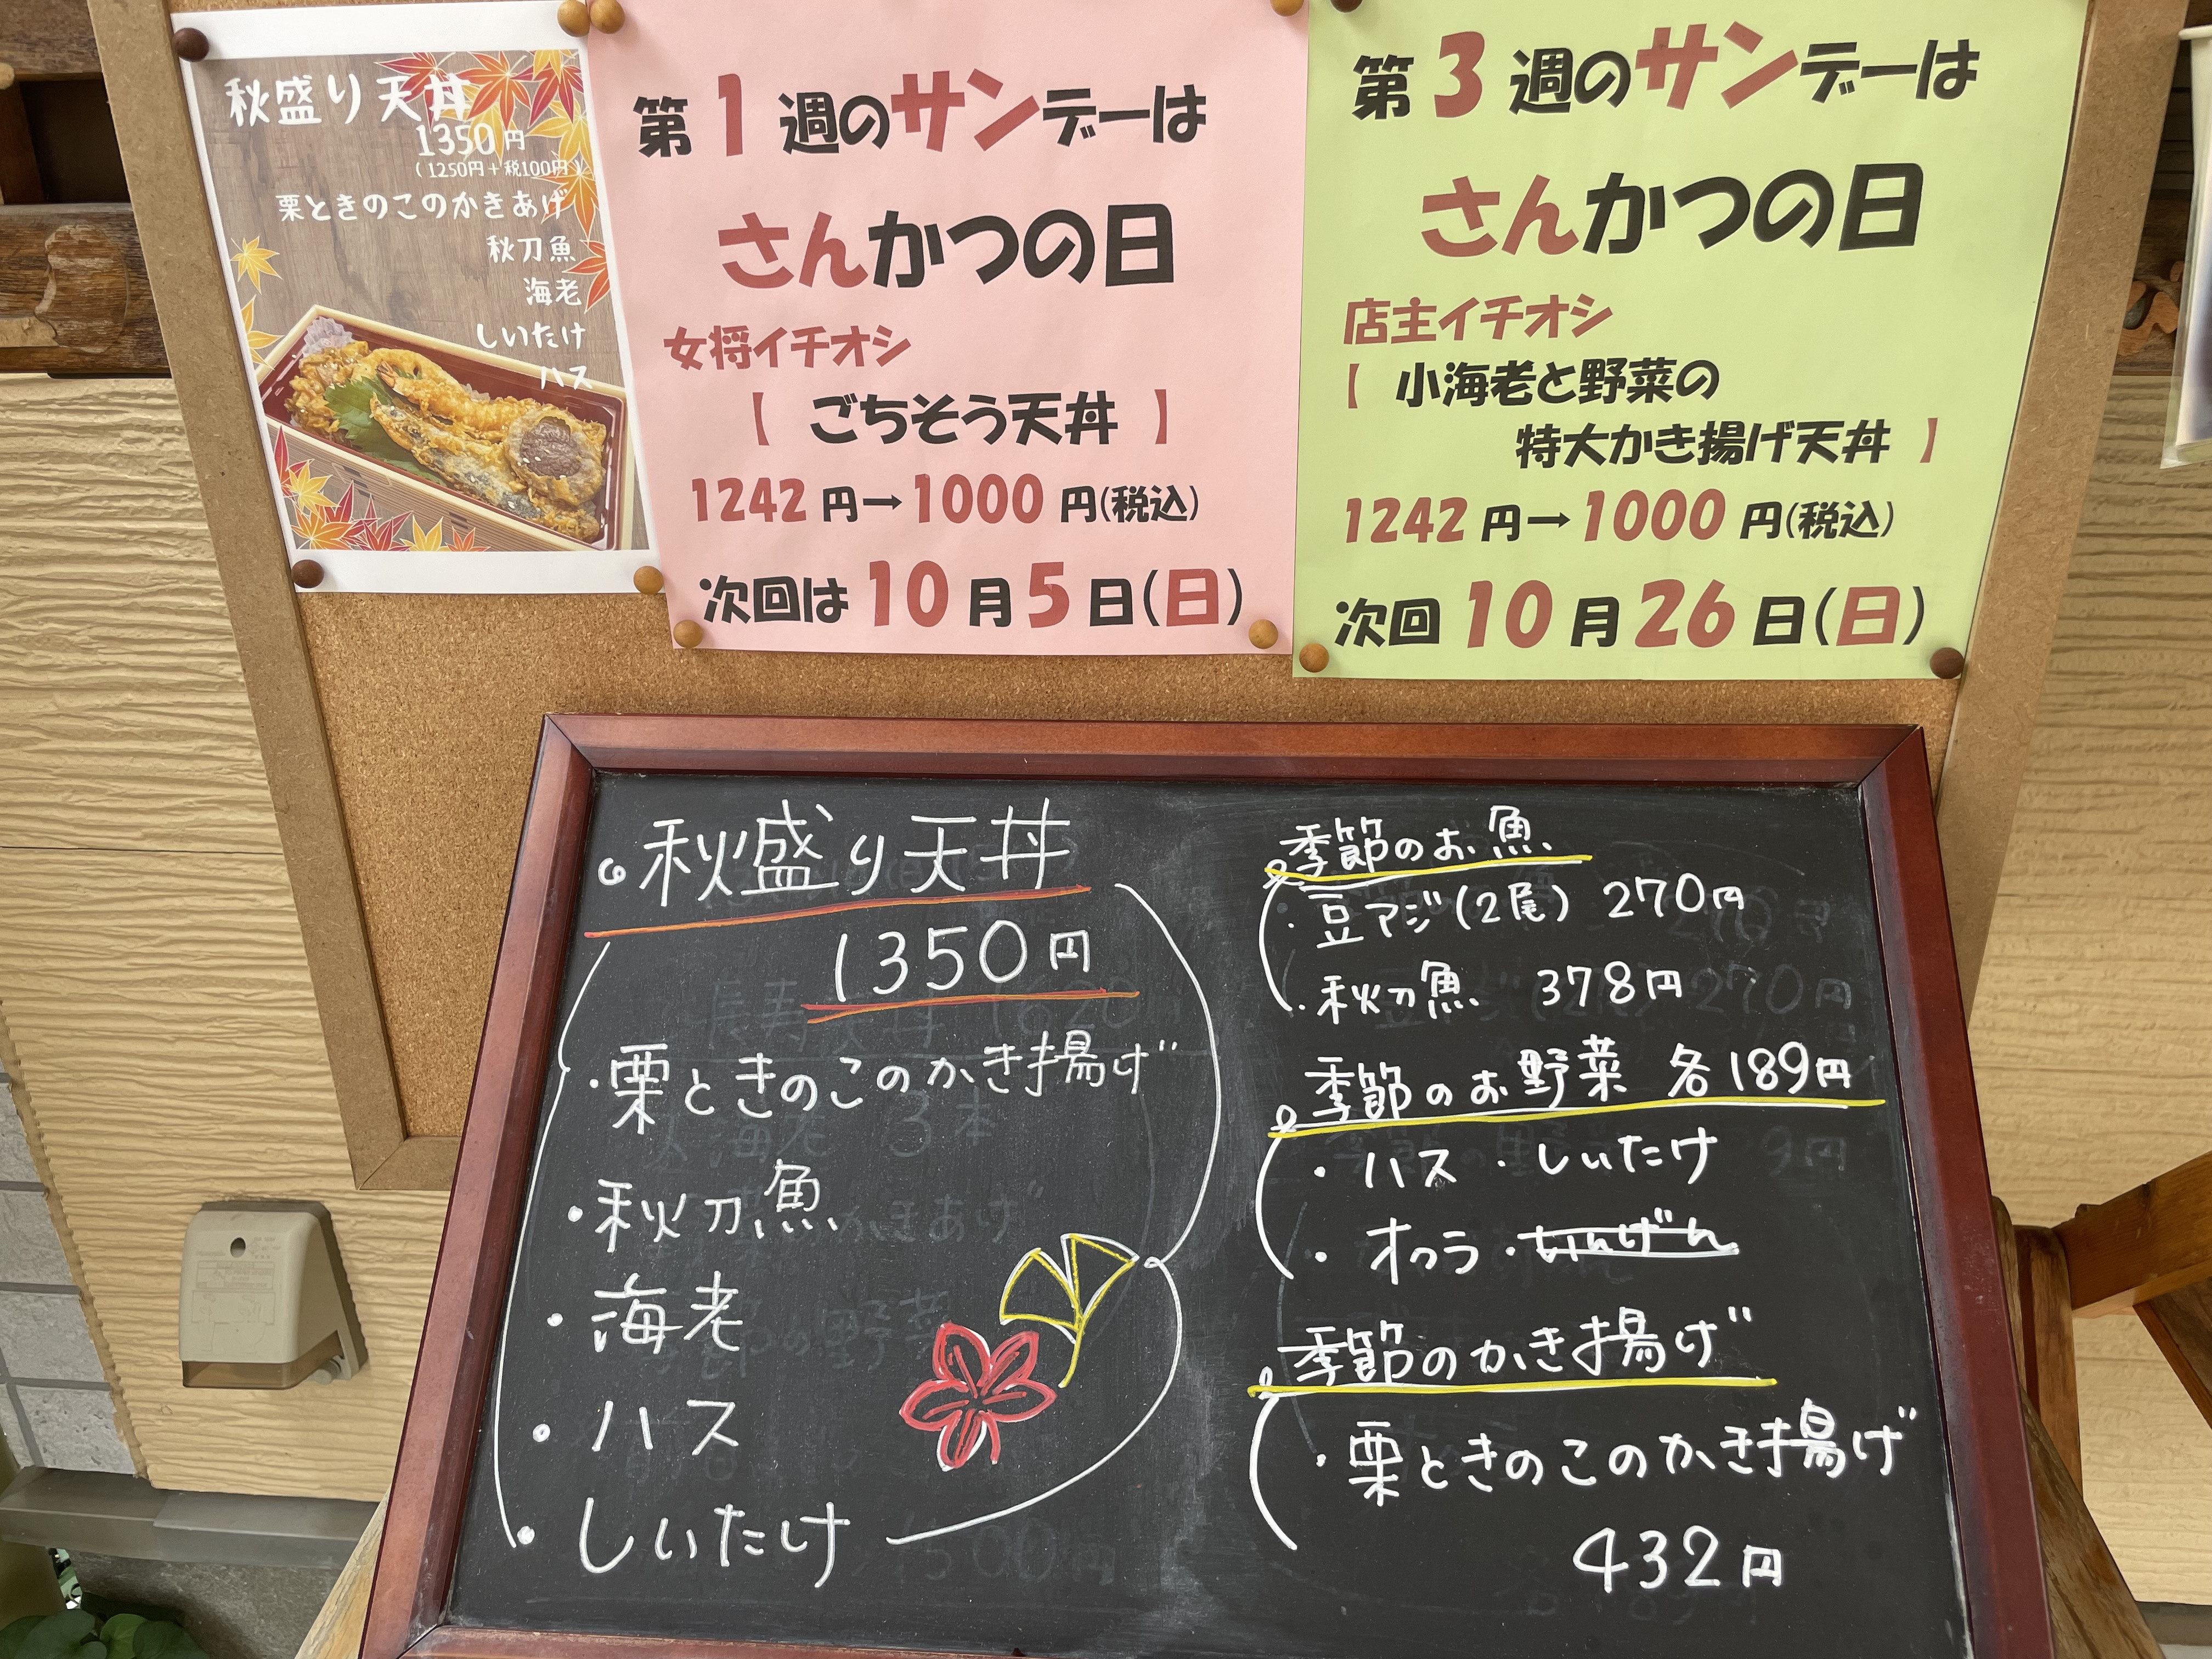 秋盛り天丼
1350円
(1250円+税100円)
栗ときのこのかきあげ
秋刀魚
海老
しいたけ
ハス
第1週のサンデーは
さんかつの日
女将イチオシ
【 ごちそう天丼 】
1242円→1000円(税込)
次回は10月5日(日)
第3週のサンデーは
さんかつの日
店主イチオシ
【 小海老と野菜の
特大かき揚げ天丼 】
1242円→1000円(税込)
次回10月26日(日)
秋盛り天丼
1350円
・栗ときのこのかき揚げ
・秋刀魚
・海老
・ハス
・しいたけ
季節のお魚
・豆アジ(2尾) 270円
・秋刀魚 378円
季節のお野菜 各189円
・ハス ・しいたけ
・オクラ ・いんげん
季節のかき揚げ
・栗ときのこのかき揚げ
432円